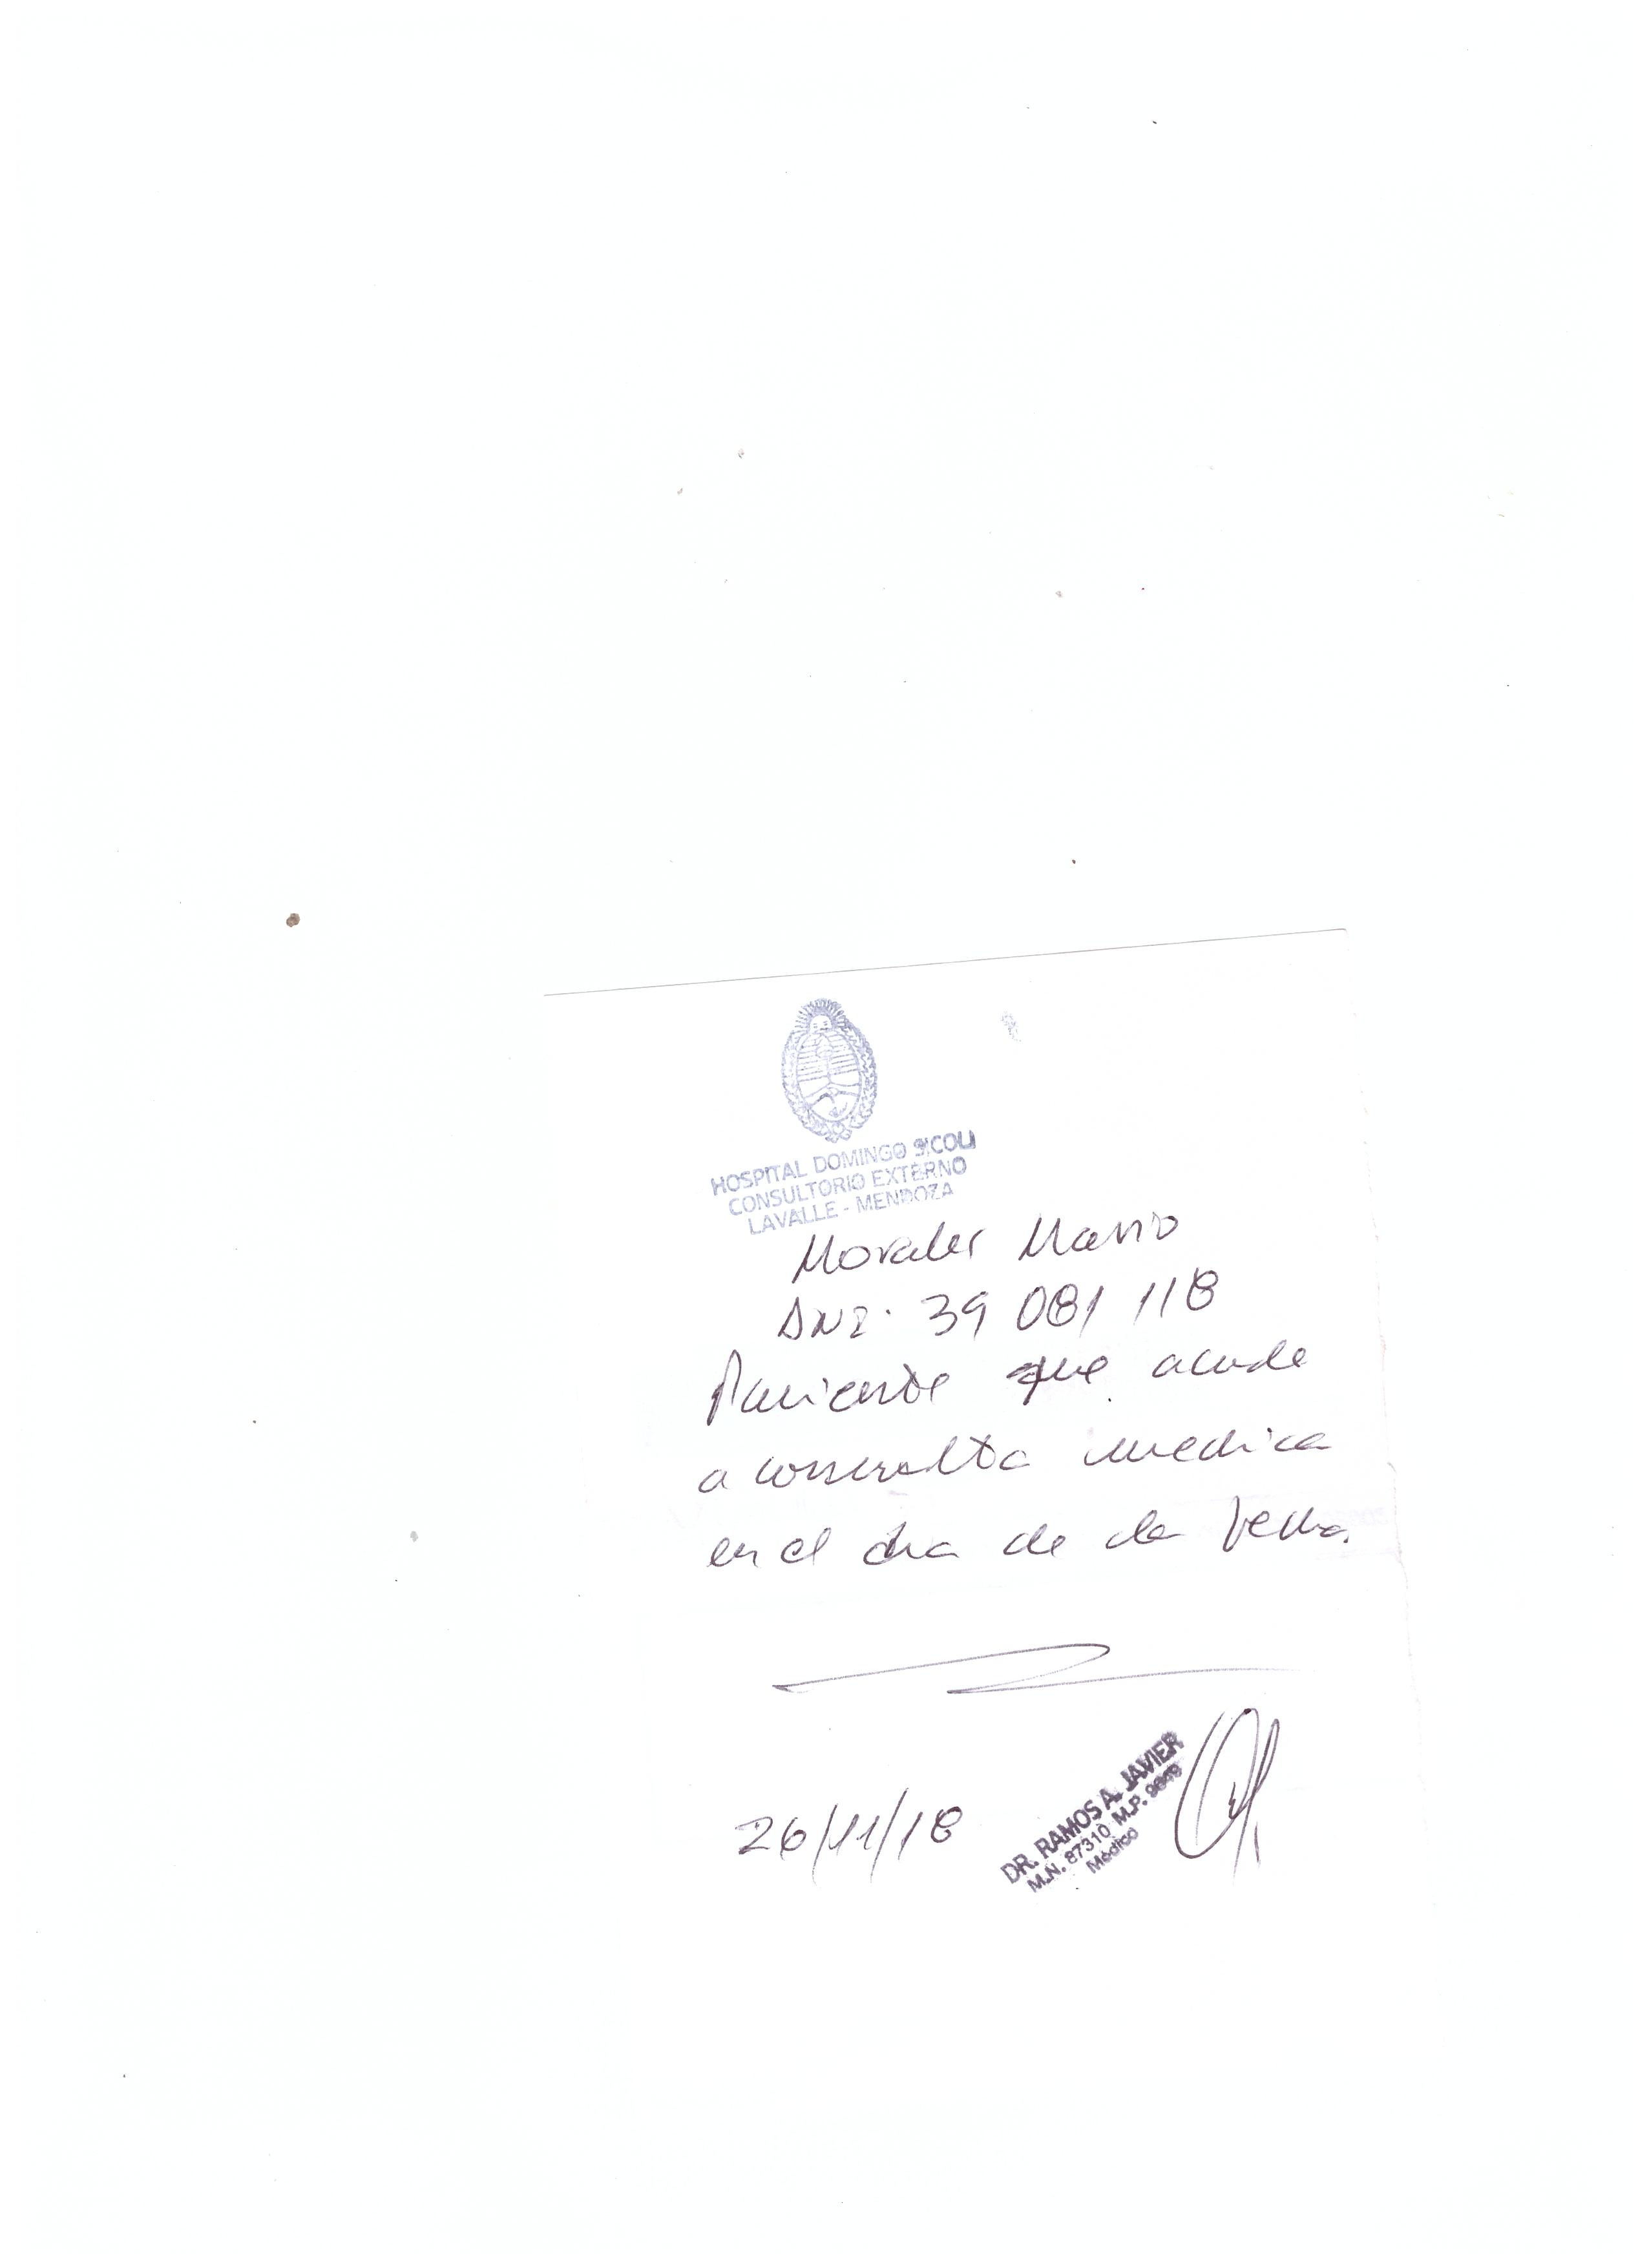 HOSPITAL DOMINGO SICOLI
CONSULTORIO EXTERNO
LAVALLE - MENDOZA
Morales Mario
DNI: 39 081 118
Paciente que acude
a consulta medica
en el dia de la fecha.
26/11/18
DR. RAMOS A. JAVIER
M.N. 87310 M.P.
Médico